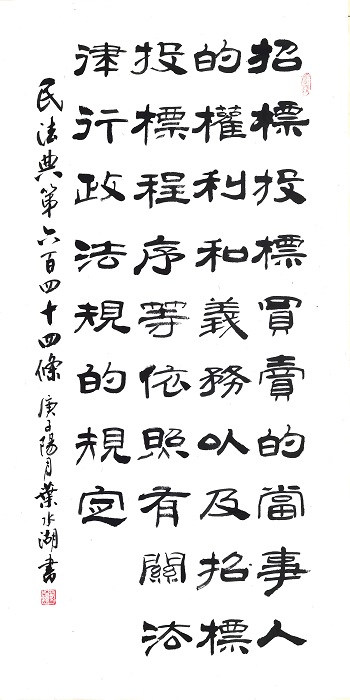 招標投標買賣的當事人
的權利和義務以及招標
投標程序等依照有關法
律行政法規的規定
民法典第六百四十四條 庚子陽月葉水湖書